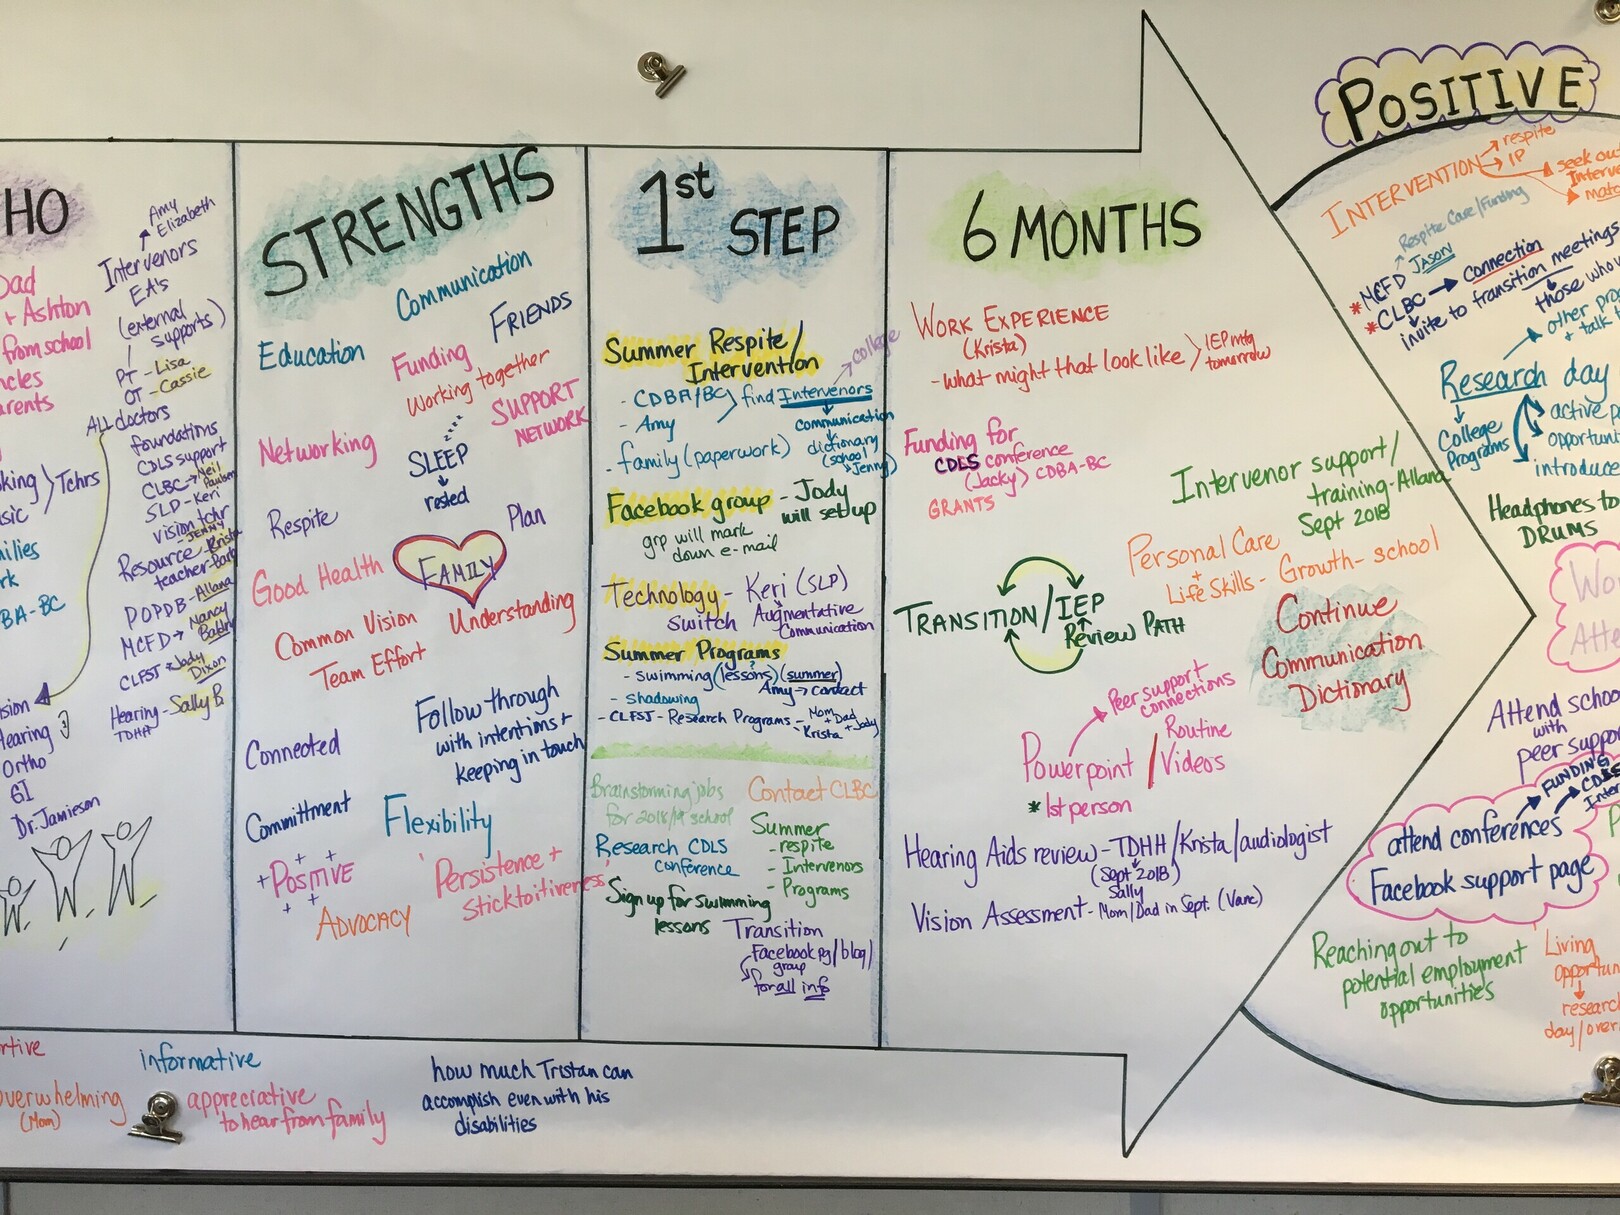 HO
Dad
+ Ashton
from school
ncles
arents
king
Tchrs
sic
milies
rk
BA-BC
sion
Hearing
Ortho
GI
Dr. Jamieson
Amy
Elizabeth
Intervenors
EA's
(external
supports)
PT - Lisa
OT - Cassie
ALL doctors
foundations
CDLS support
CLBC → Neil
SLP - Keri
vision tchr
- JENNY
Resource - Krista
teacher - Barb
POPDB - Allana
MCFD → Nancy
CLFSJ → Jody
Dixon
Hearing - Sally B
TDHH
STRENGTHS
Communication
FRIENDS
Education
Funding
Working together
SUPPORT
NETWORK
Networking
SLEEP
rested
Respite
Plan
Good Health
FAMILY
Common Vision
Understanding
Team Effort
Follow through
with intentions +
keeping in touch
Connected
Committment
Flexibility
+ POSITIVE
Persistence +
sticktoitiveness
ADVOCACY
1st STEP
Summer Respite/
Intervention → college
- CDBA/BC > find Intervenors
- Amy
communication
dictionary
(school
Jenny)
- family (paperwork)
Facebook group - Jody
will set up
grp will mark
down e-mail
Technology - Keri (SLP)
switch Augmentative
Communication
Summer Programs
- swimming (lessons) (summer)
Amy → contact
- shadowing
- CLFSJ - Research Programs - Mom + Dad
- Krista + Jody
Brainstorming jobs
for 2018/19 school
Contact CLBC
Research CDLS
conference
Summer
- respite
- Intervenors
- Programs
Sign up for swimming
lessons
Transition
Facebook pg/blog/
group
for all info
6 MONTHS
WORK EXPERIENCE
(Krista)
- what might that look like > IEP mtg
tomorrow
Funding for
CDLS conference
(Jacky) CDBA-BC
GRANTS
Intervenor support/
training - Allana
Sept 2018
Personal Care
+
Life Skills - Growth - school
TRANSITION/IEP
Review PATH
Continue
Communication
Dictionary
Peer support
connections
Powerpoint / Routine
Videos
* 1st person
Hearing Aids review - TDHH/Krista/audiologist
(Sept 2018)
Sally
Vision Assessment - Mom/Dad in Sept. (Vanc)
POSITIVE
INTERVENTION → respite
→ IP
→ seek out
Interve
matc
Respite Care/Funding
* MCFD Jason
* CLBC → Connection
invite to transition meetings
those who
Research day
other pro
+ talk t
College
Programs
active p
opportuni
introduce
Headphones to
DRUMS
Wo
Atte
Attend schoo
with
peer suppor
FUNDING
CDLS
Inter
attend conferences
Facebook support page
Reaching out to
potential employment
opportunities
Living
opportun
research
day/over
rtive
overwhelming
(Mom)
informative
appreciative
to hear from family
how much Tristan can
accomplish even with his
disabilities